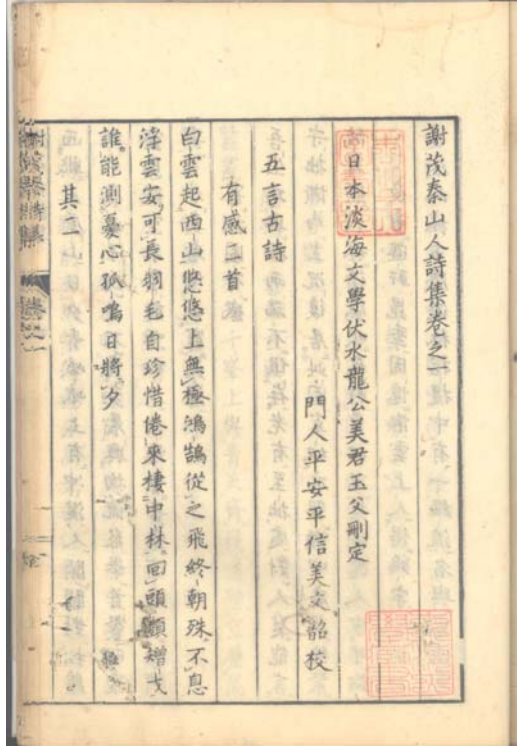 謝茂秦山人詩集卷之一
日本淡海文學伏水龍公美君玉父刪定
門人平安平信美文韶校
五言古詩
有感二首
白雲起西山悠悠上無極鴻鵠從之飛終朝殊不息
浮雲安可長羽毛自珍惜倦來棲中林回頭顧矰弋
誰能測憂心孤鳴日將夕
其二